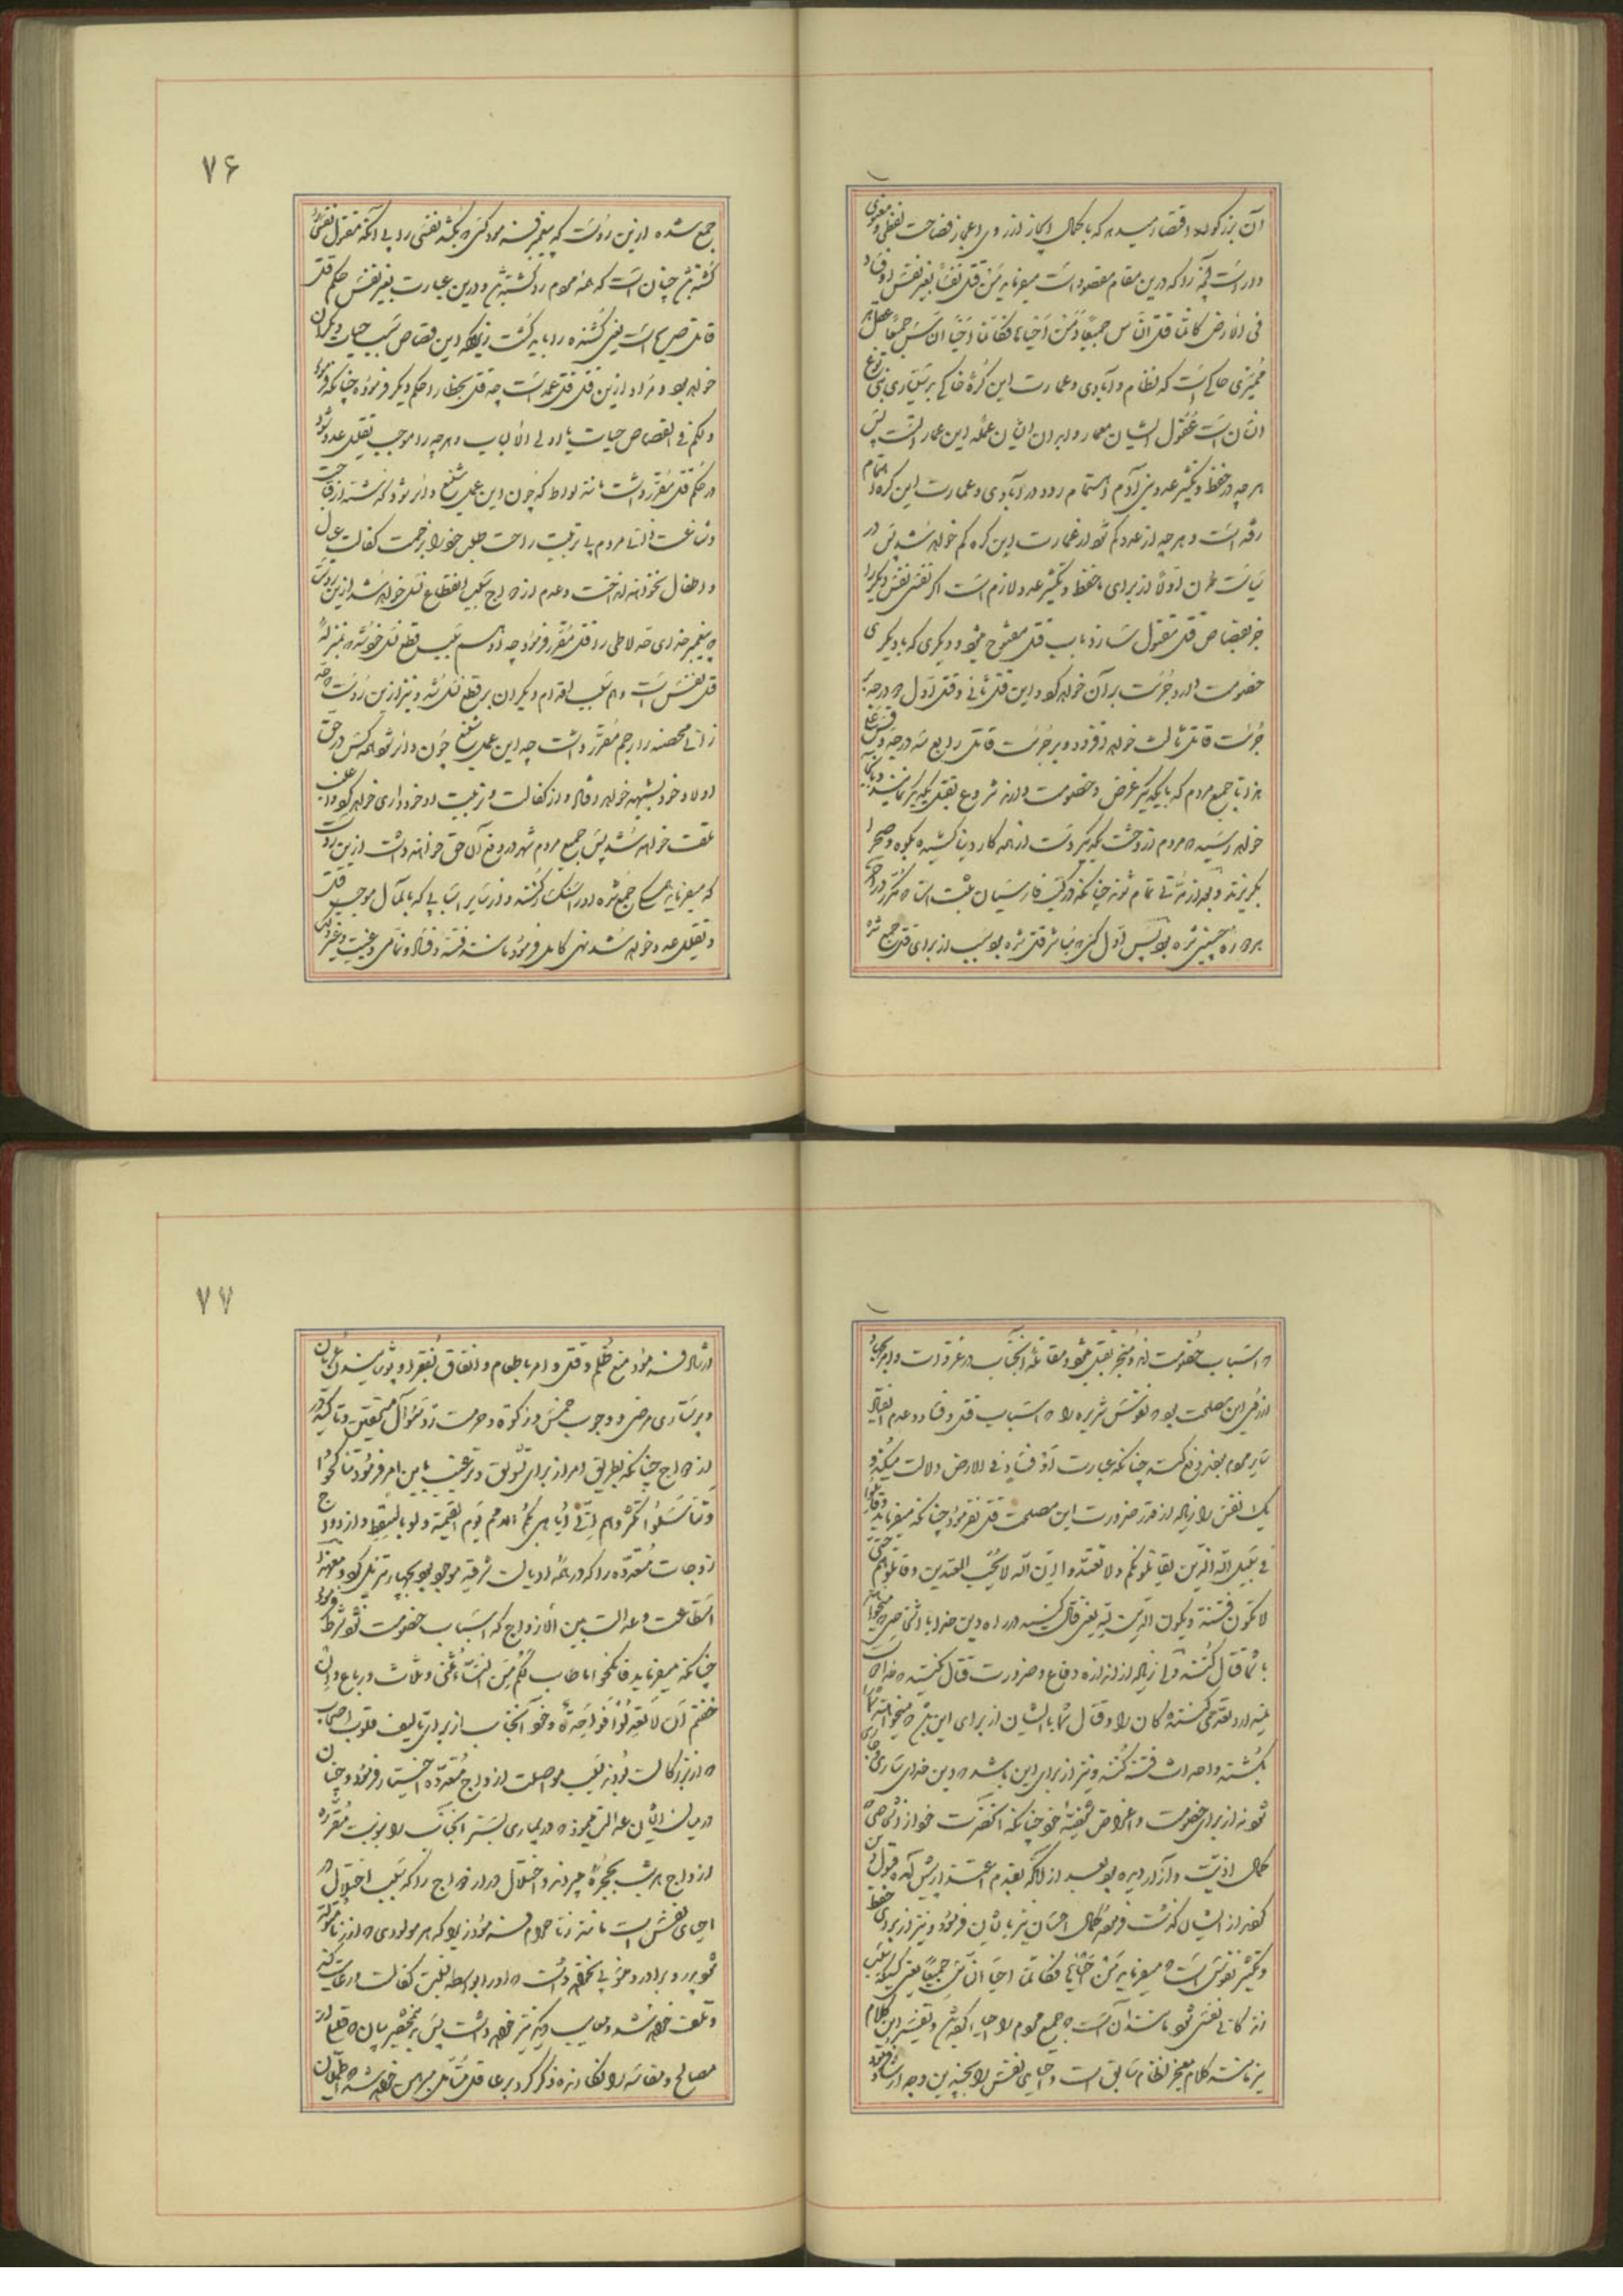 آن بزرگوار اقتصار میدهد که با کمال ایجاز از روی اعجاز فصاحت لفظی و معنوی
داراست آنچه را که درین مقام مقصود است میفرماید من قتل نفسا بغیر نفس او فساد
فی الارض کانما قتل الناس جمیعا و من احیاها فکانما احیا الناس جمیعا عقل هر
ممیزی حاکی است که نظام و آبادی و عمارت این کره خاکی بر بسیاری بنی نوع
انسان است عقول ایشان معمار و ابدان ایشان عمله این عمار است پس
هر چه در حفظ و تکثیر عدد بنی آدم اهتمام رود در آبادی و عمارت این کره اهتمام
رفته است و هر چه از عدد کم شود از عمارت این کره کم خواهد شد پس در
سیاست مدن اولا از برای ما حفظ و تکثیر عدد لازم است اگر نفسی نفس دیگر را
جز بقصاص قتل مقتول سازد باب قتل مفتوح میشود و دیگری که با دیگری
خصومت دارد جرئت بر آن خواهد کرد و این قتل ثانی و قتل اول
جرئت قاتل ثالث خواهد افزود و بر جرئت قاتل رابع سه درجه
جمیع مردم که با یکدیگر غرض و خصومت دارند شروع بقتل یکدیگر نمایند
خواهد رسید که مردم از وحشت یکدیگر دست از همه کار دنیا کشیده بکوه و صحرا
بگریزند و بعد از مدتی تمام شوند چنانکه در کتب فارسیان ثبت است
چنین شده بود پس اول کسی که مباشر قتل شده بود سبب از برای قتل جمیع شده
۷۶
جمع شده ازین روست که پیغمبر فرمود کسی که بکشد نفسی را بی آنکه مقتول نفسی را
کشته باشد چنان است که همه مردم را کشته باشد و درین عبارت بغیر نفس حکم قتل
قاتل تصریح است یعنی کشنده را باید کشت زیرا که این قصاص سبب حیات دیگران
خواهد بود و مراد ازین قتل قتل عمد است چه قتل بخطا را حکم دیگر فرموده چنانکه فرمود
ولکم فی القصاص حیات یا اولی الالباب و هر چه را موجب تقلیل عدد بود
در حکم قتل مقرر داشت مانند لواط که چون این عمل شنیع دایر شود
مردم بی تربیت راحت طلب خود را بزحمت کفالت عیال
و اطفال نخواهند انداخت و عدم ازدواج سبب انقطاع نسل خواهد شد ازین روست
که پیغمبر خدای حد لاطی را قتل مقرر فرمود چه او هم سبب قطع نسل خود شده بمنزله
قتل نفس است و هم سبب اقدام دیگران بر قطع نسل شده و نیز ازین روست که حد
زانی محصنه را رجم مقرر داشت چه این عمل شنیع چون دایر شود همه کس در حق
اولاد خود بشبهه خواهد افتاد و از کفالت و تربیت او خودداری خواهد کرد
تلف خواهد شد پس جمیع مردم شهر در دفع آن حق خواهند داشت ازین روست
که میفرماید همگی جمع شده او را سنگسار کنند و از سایر اسبابی که بالمآل موجب قتل
و تقلیل عدد خواهد شد نهی کامل فرمود مانند فتنه و فساد و نمامی و غیبت
که اسباب خصومت اند و منجر بقتل میشود و مقاتله آنجناب در غزوات و امر بجهاد
از روی این مصلحت بود که نفوس شریره را که اسباب قتل و فساد و عدم
سایر مردم بودند دفع کند چنانکه عبارت او فساد فی الارض دلالت میکند و
یک نفس را زیاده از قدر ضرورت این مصلحت قتل نفرمود چنانکه میفرماید وقاتلوا
فی سبیل الله الذین یقاتلونکم ولا تعتدوا ان الله لا یحب المعتدین وقاتلوهم حتی
لا تکون فتنة ویکون الدین لله یعنی قتال کنید در راه دین خدا با اشخاصی که میخواهند
با شما قتال کنند ولی زیاده از اندازه دفاع و ضرورت قتال نکنید که خداوند
تعدی کنندگان را و قتال شما با ایشان از برای این باشد که میخواهند شما را
بکشند و احداث فتنه کنند و نیز از برای این باشد که دین خدای ساری و جاری
شود نه از برای خصومت و اغراض شخصیه خود چنانکه آنحضرت خود از اشخاصی که
کمال اذیت و آزار دیده بود بعد از آنکه بقدم اعتذار پیش آمدند قبول
از ایشان گذشت فرموده کمال احسان نیز با ایشان فرمود و نیز از برای حفظ
و تکثیر نفوس است که میفرماید من احیاها فکانما احیا الناس جمیعا یعنی کسیکه سبب
زندگانی نفسی شود مانند آن است که جمیع مردم را احیا کرده باشد و تفسیر این کلام
نیز مانند کلام معجز نظام سابق است و احیای نفس را بچندین وجه ارشاد فرمود
۷۷
ارشاد فرمود منع ظلم و قتل و امر باطعام و انفاق بفقرا و پوشانیدن عریان
و پرستاری مرضی و وجوب خمس و زکوة و حرمت رد سؤال مستحقین و تاکید در
ازدواج چنانکه بطریق امر از برای تشویق و ترغیب باین امر فرمود تناکحوا
وتناسلوا تکثروا فانی اباهی بکم الامم یوم القیمة ولو بالسقط و ازدواج
زوجات متعدده را که در همه ادیان شرقیه موجود بود بچهار تنزیل کرد و معهذا
استطاعت و عدالت بین الازواج که اسباب خصومت نشود شرط فرمود
چنانکه میفرماید فانکحوا ما طاب لکم من النساء مثنی وثلاث ورباع وان
خفتم ان لا تعدلوا فواحدة و خود آنجناب از برای تالیف قلوب اصحاب
که از بزرگان بودند بسبب مواصلت ازواج متعدده اختیار فرمود و چنان
در میان ایشان عدالت میفرمود که در بیماری بستر آنجناب را بنوبت مقرره
ازواج هر شب بحجره میبردند و اختلال در ازدواج را که سبب اختلال در
احیای نفس است مانند زنا حرام فرمود زیرا که هر مولودی که از زنا متولد
شود پدر و برادر و خویشی نخواهد داشت که او را بواسطه کفالت و رعایت کند
و تلف خواهد شد و معایب دیگر نیز خواهد داشت پس بر مختصر بیان
مصالح و مفاسد را ذکر کرد بر عاقل متامل مبرهن خواهد شد